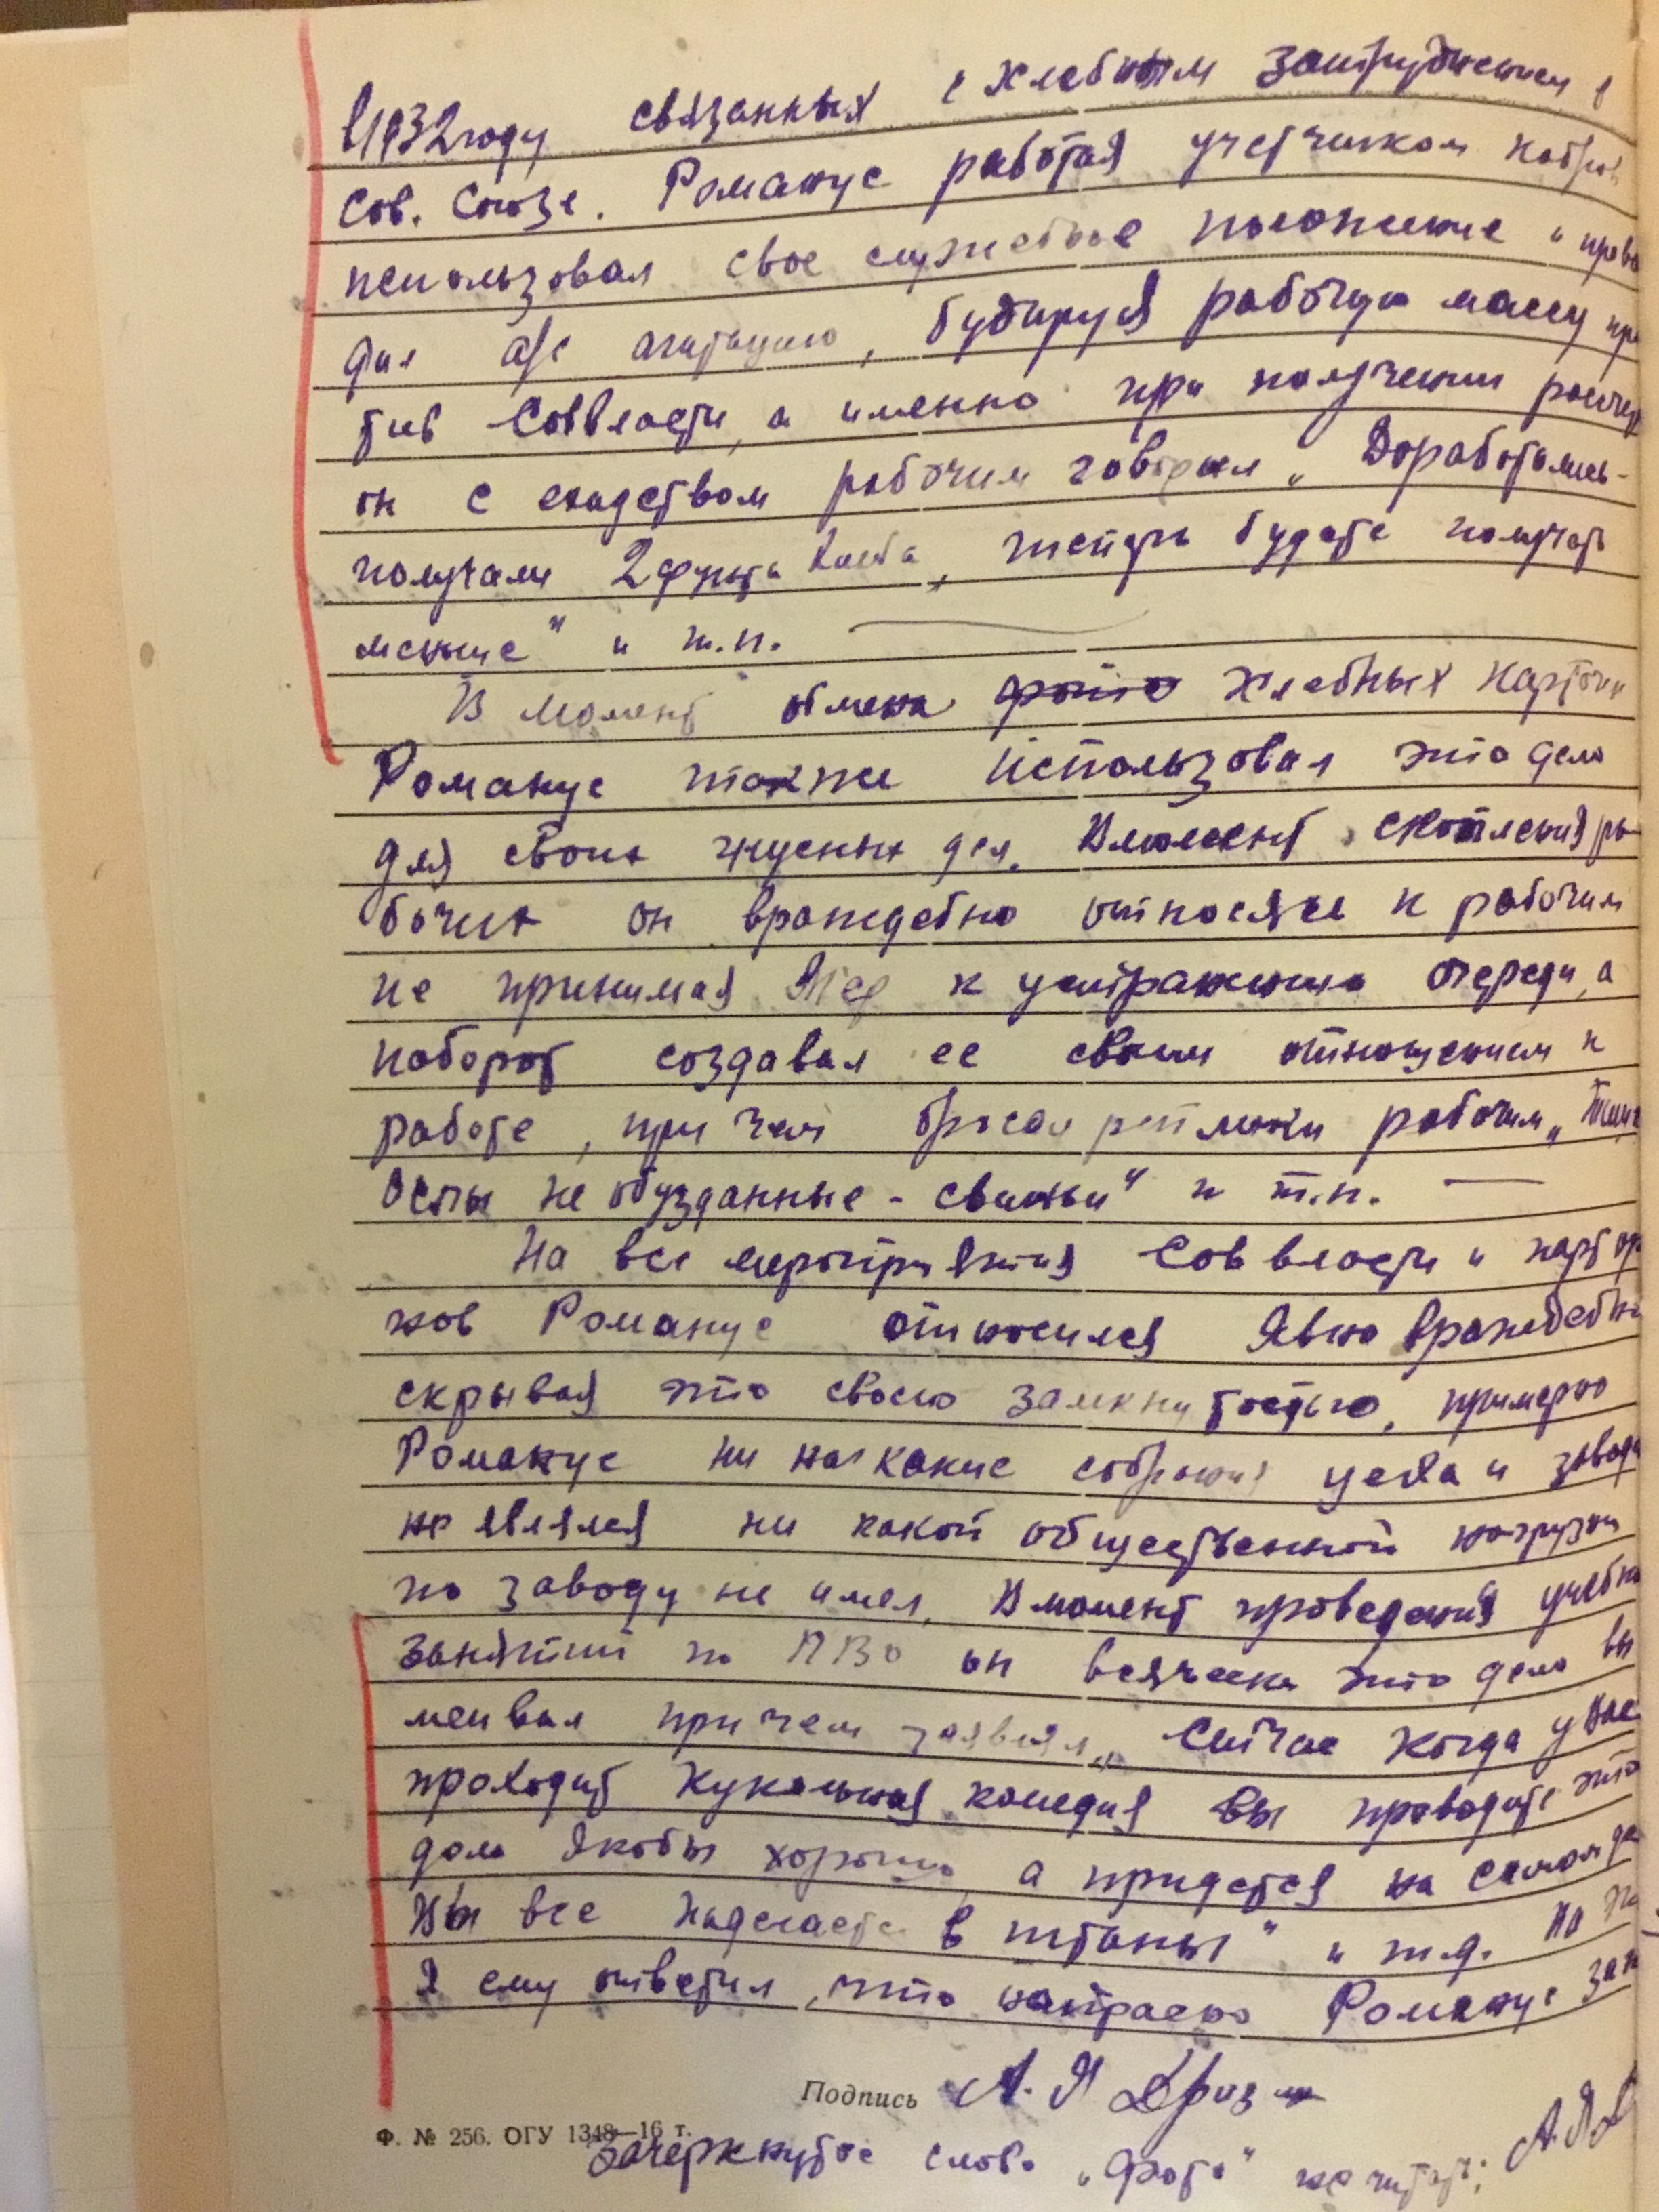 в 1932 году связанных с хлебным затруднением в
Сов. Союзе. Романус работая учетчиком
использовал свое служебное положение и прово
дил а/с агитацию, будируя рабочую массу про
тив Соввласти, а именно при получении
он с ехидством рабочим говорил „Доработались-
получали 2 фунта хлеба, теперь будете получать
меньше" и т.п.
В момент обмена фото хлебных карточек
Романус также использовал это дело
для своих гнусных дел. В момент скопления ра
бочих он враждебно относясь к рабочим
не принимая мер к устранению очереди, а
наоборот создавал ее своим отношением к
работе, при чем бросал реплики рабочим „
Ослы не обузданные - свиньи" и т.п.
На все мероприятия Соввласти и
Романус относился явно враждебно
скрывая это своею замкнутостью, примерно
Романус ни на какие собрания цеха и завода
не являлся ни какой общественной нагрузки
по заводу не имел. В момент проведения учебных
занятий по ПВО он всячески это дело вы
меивал причем заявлял „Сейчас когда у вас
проходит кукольная комедия вы проводите это
дело якобы хорошо, а придется на самом де
вы все наделаете в штаны" и т.д.
Я ему ответил, что напрасно Романус
Подпись А. Я
Ф. № 256. ОГУ 1348—16 т.
Зачеркнутое слово „фото" не читать; А.Я.